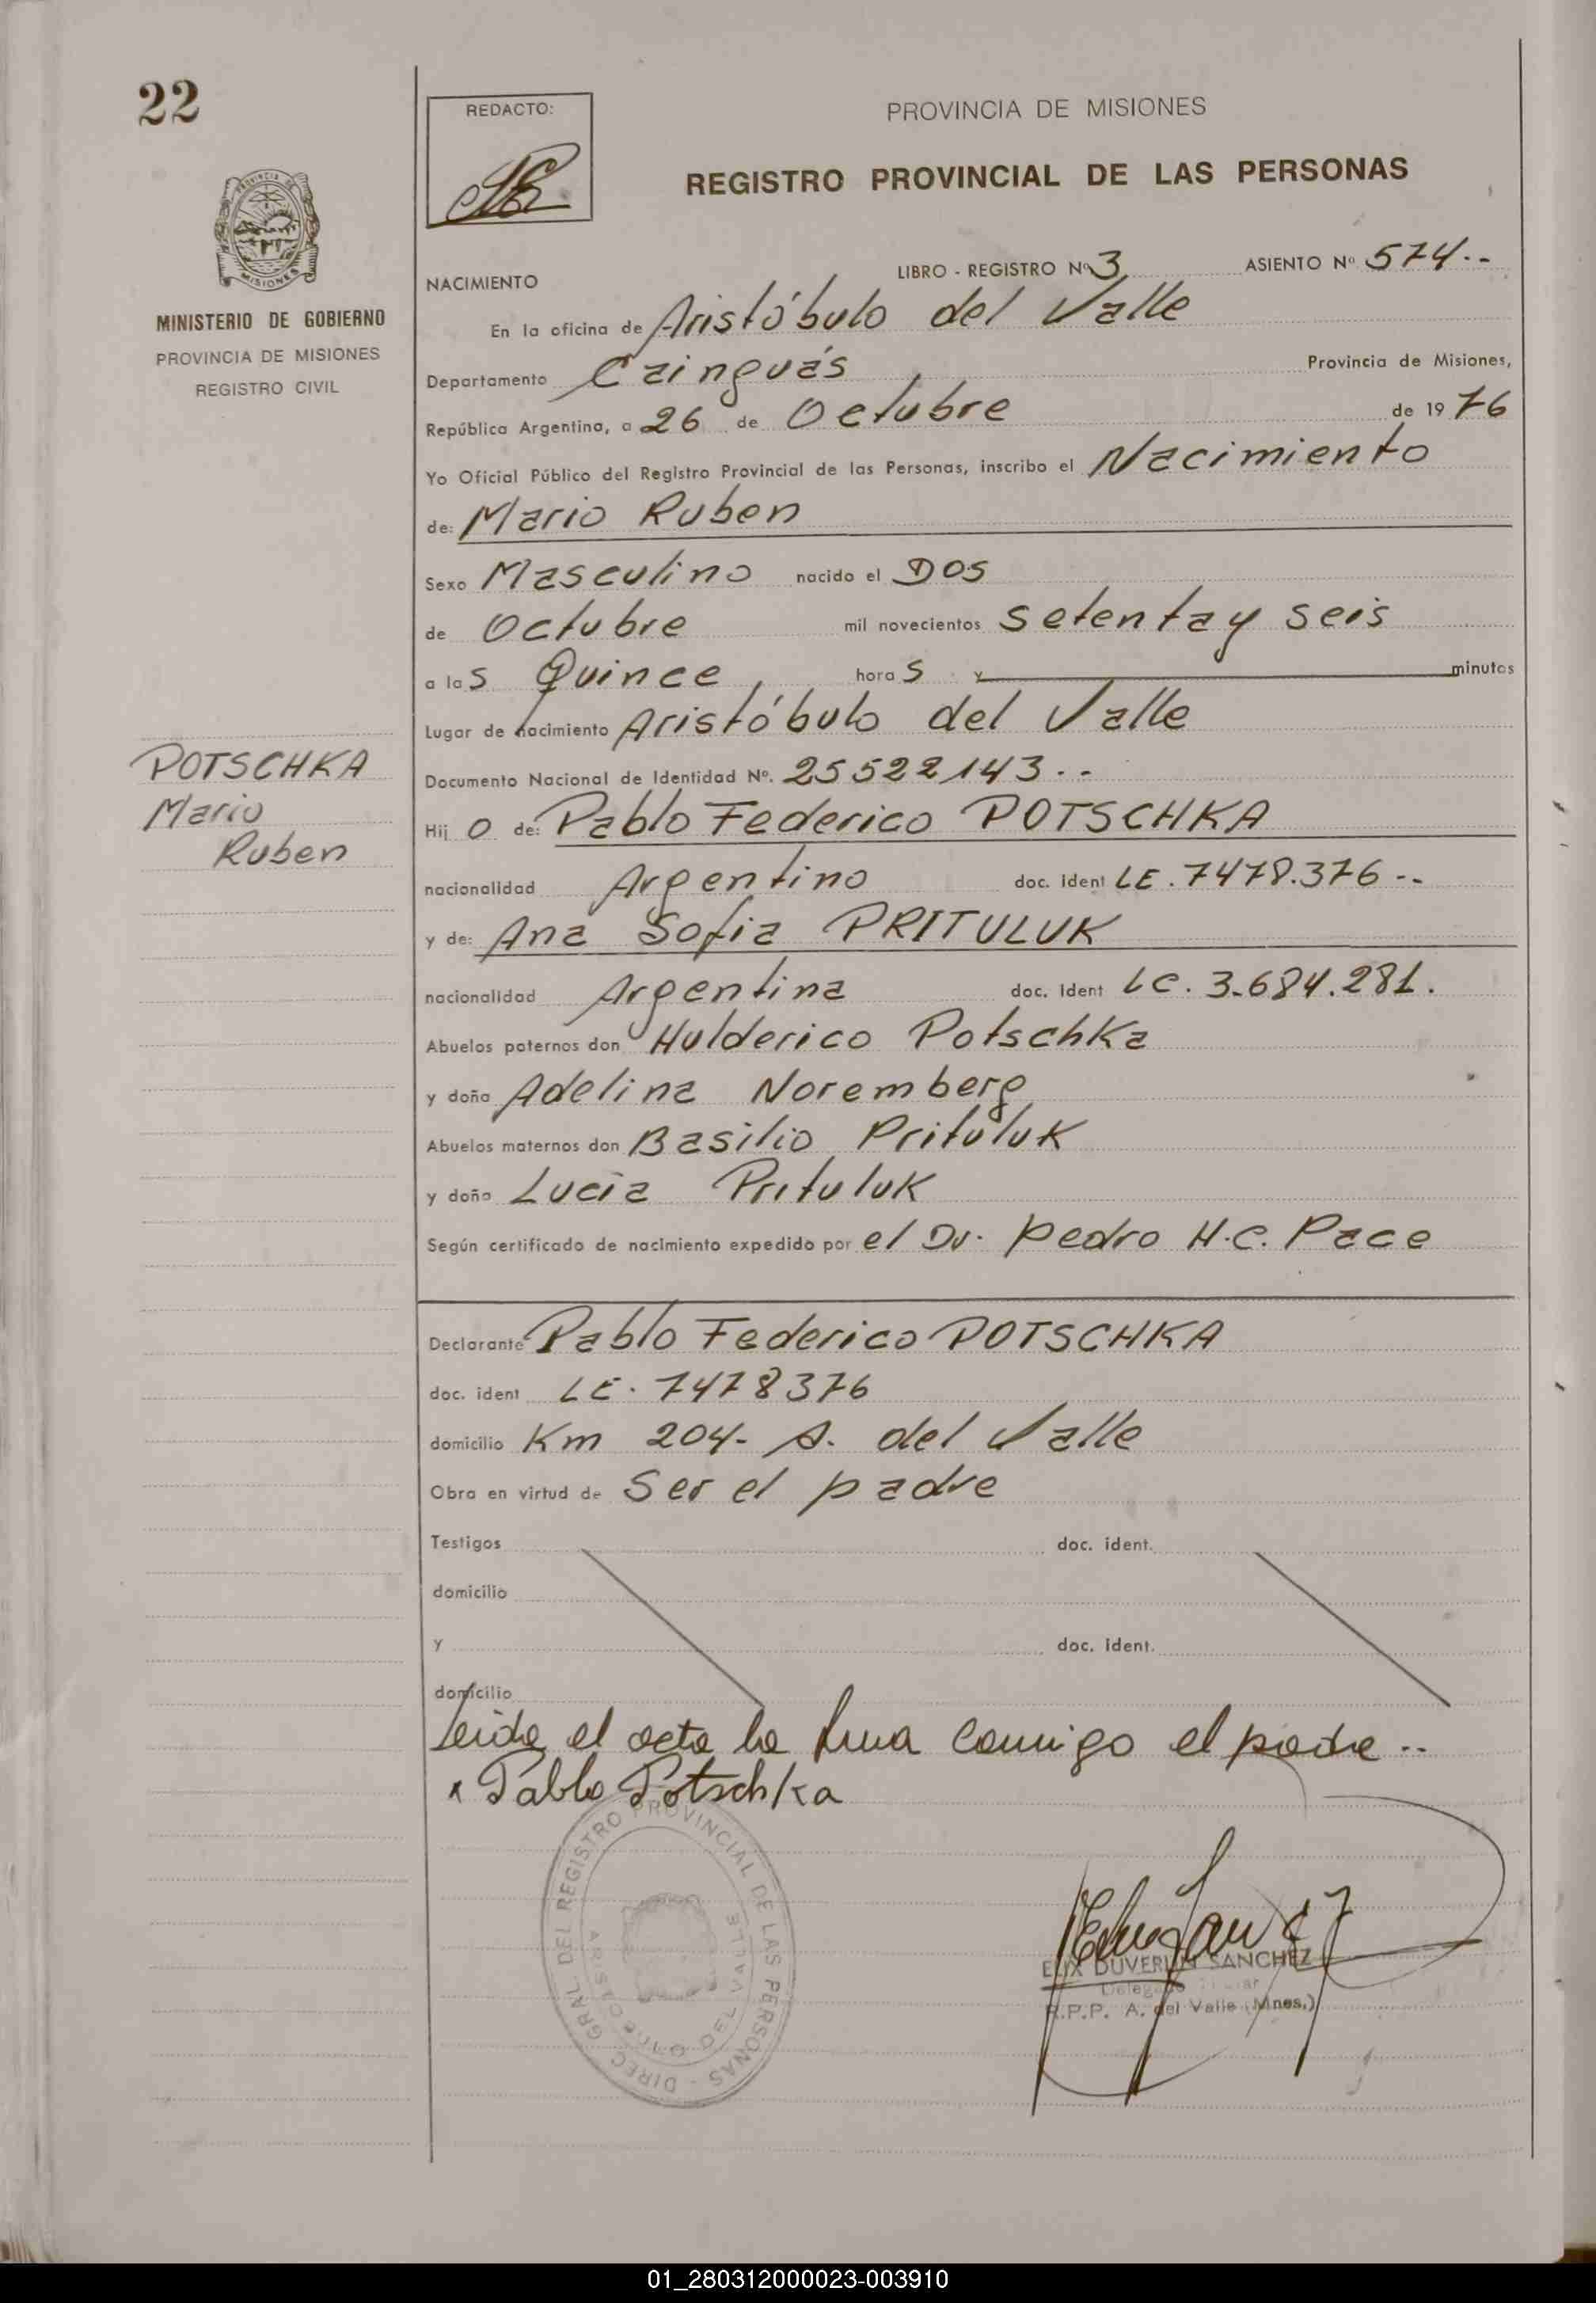 22
REDACTO:
PROVINCIA DE MISIONES
REGISTRO PROVINCIAL DE LAS PERSONAS
PROVINCIA DE
MISIONES
MINISTERIO DE GOBIERNO
PROVINCIA DE MISIONES
REGISTRO CIVIL
NACIMIENTO LIBRO - REGISTRO Nº 3 ASIENTO Nº 574--
En la oficina de Aristóbulo del Valle
Departamento Cainguás Provincia de Misiones,
República Argentina, a 26 de Octubre de 1976
Yo Oficial Público del Registro Provincial de las Personas, inscribo el Nacimiento
de: Mario Ruben
Sexo Masculino nacido el Dos
de Octubre mil novecientos setenta y seis
a las Quince horas y minutos
Lugar de nacimiento Aristóbulo del Valle
POTSCHKA
Mario
Ruben
Documento Nacional de Identidad Nº. 25522143--
Hijo de: Pablo Federico POTSCHKA
nacionalidad Argentino doc. ident LE. 7478.376--
y de: Ana Sofia PRITULUK
nacionalidad Argentina doc. ident LC. 3.684.281.
Abuelos paternos don Hulderico Potschka
y doña Adelina Noremberg
Abuelos maternos don Basilio Prituluk
y doña Lucia Prituluk
Según certificado de nacimiento expedido por el Dr. Pedro H.C. Pace
Declarante Pablo Federico POTSCHKA
doc. ident LE. 7478376
domicilio Km 204- A. del Valle
Obra en virtud de Ser el padre
Testigos doc. ident.
domicilio
y doc. ident.
domicilio
Leida el acta la firma conmigo el padre--
x Pablo Potschka
DIREC. GRAL DEL REGISTRO PROVINCIAL DE LAS PERSONAS -
DEL VALLE
ELIX DUVERLIN SANCHEZ
Delegado Titular
R.P.P. A. del Valle (Mnes.)
01_280312000023-003910